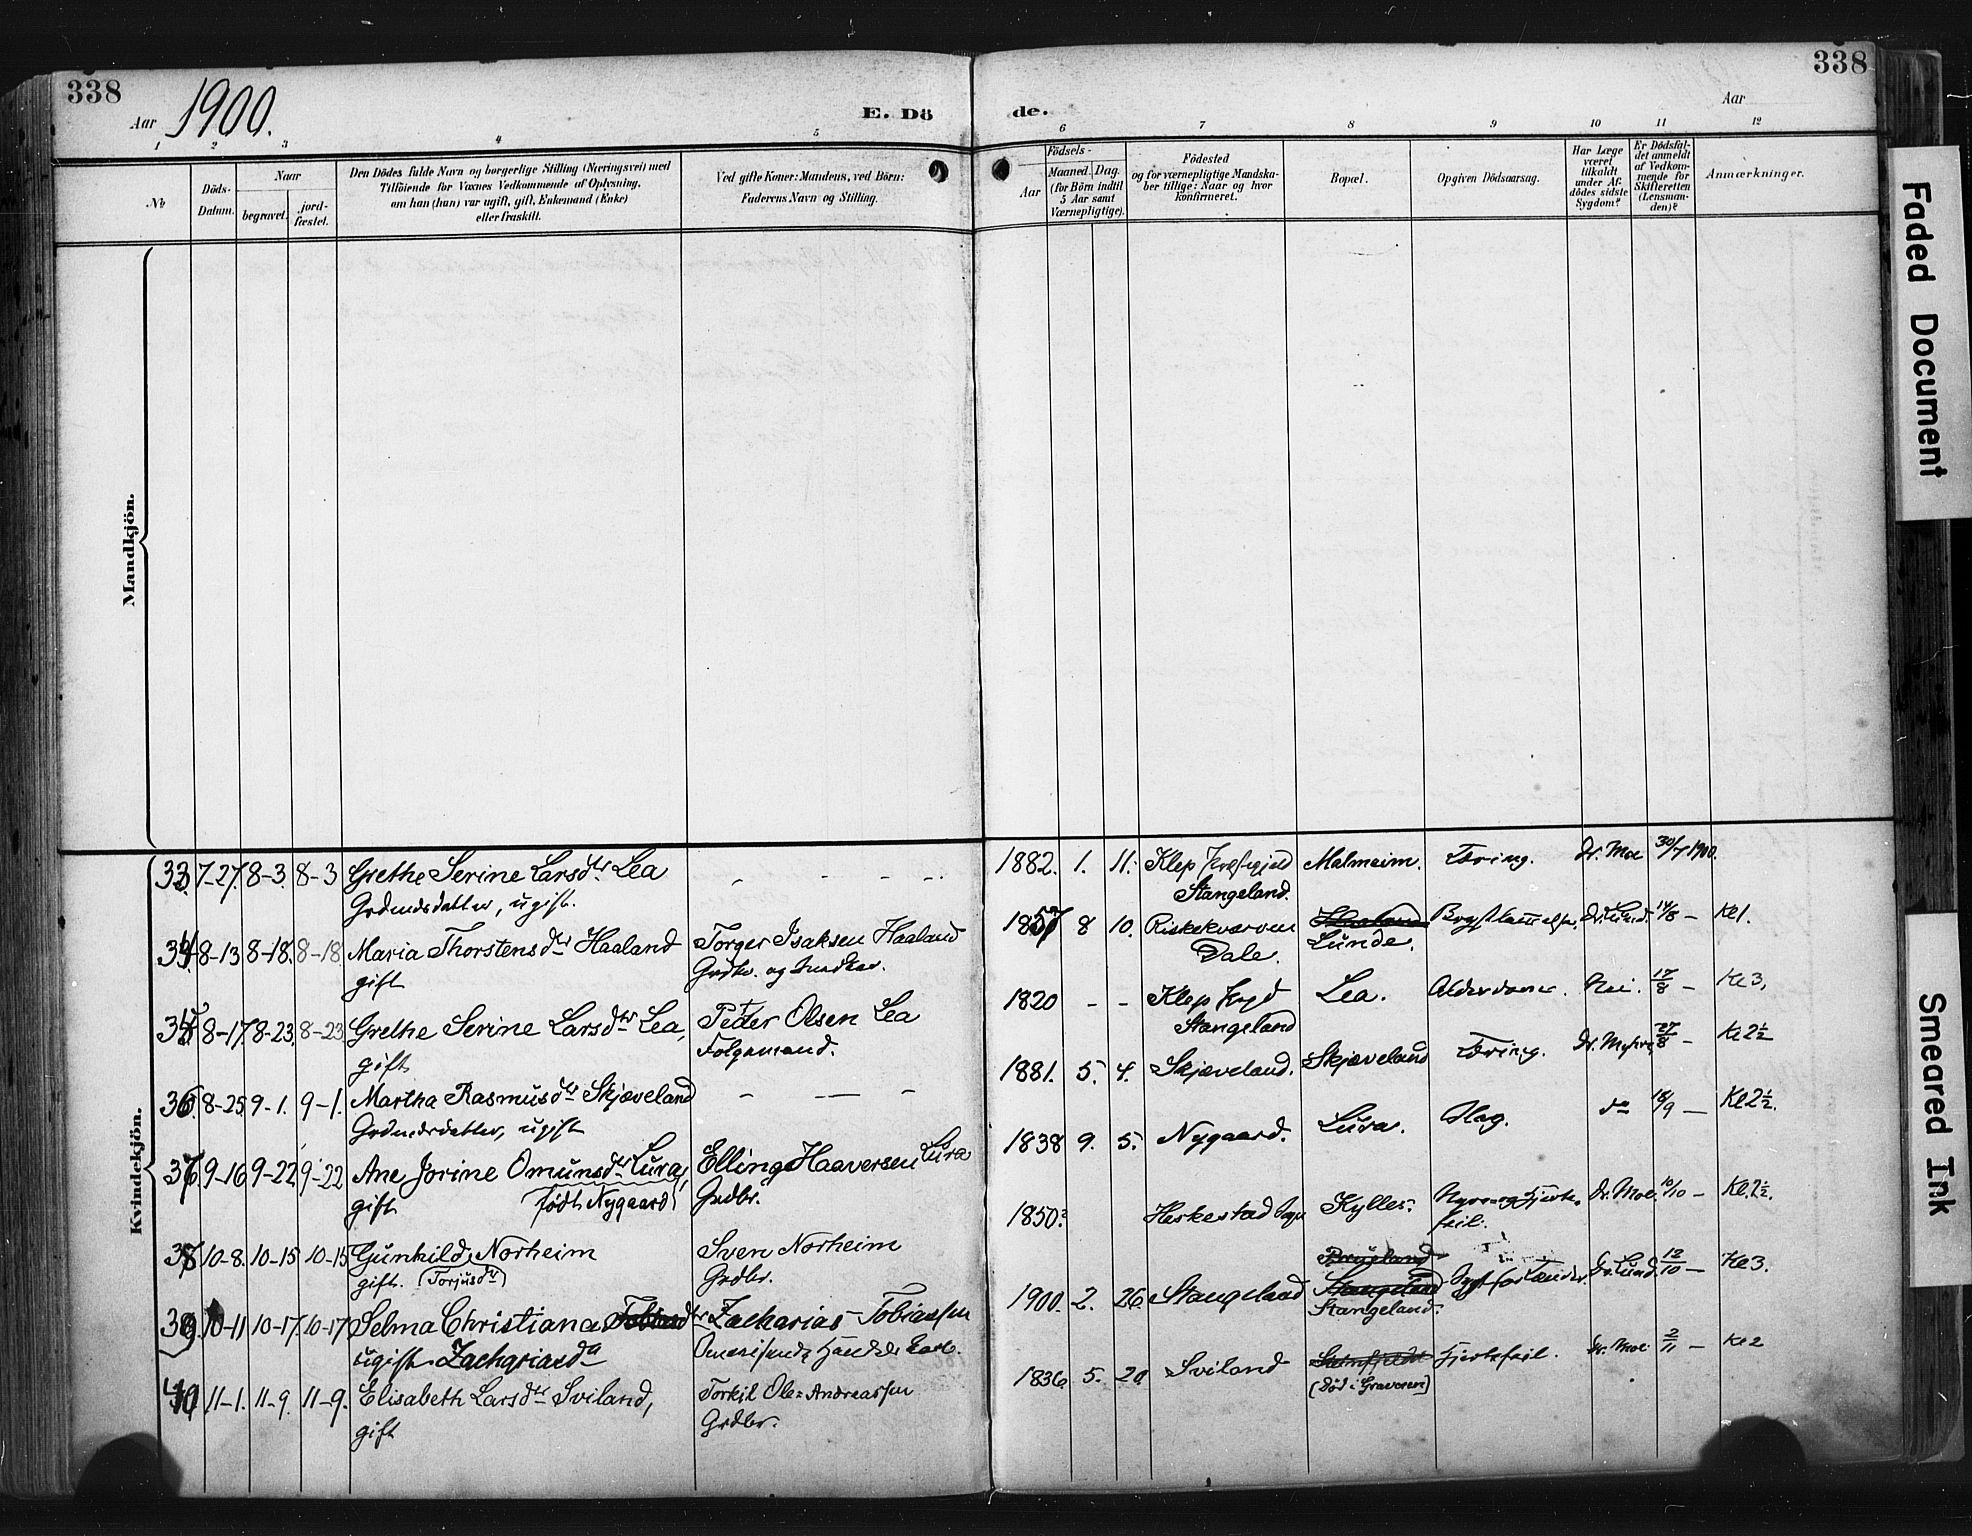 338
Aar 1900.
E. Dö
de.
Aar
338
1 2 3 4 5 6 7 8 9 10 11 12
No
Döds-
Datum.
Naar
begravet.
jord-
fæstet.
Den Dödes fulde Navn og borgerlige Stilling (Næringsvei) med
Tilföiende for Voxnes Vedkommende af Oplysning,
om han (hun) var ugift, gift, Enkemand (Enke)
eller fraskilt.
Ved gifte Koner: Mandens, ved Börn:
Faderens Navn og Stilling.
Födsels-
Aar
Maaned. Dag.
(for Börn indtil
5 Aar samt
Værnepligtige).
Födested
og for værnepligtige Mandska-
ber tillige: Naar og hvor
konfirmeret.
Bopæl.
Opgiven Dödsaarsag.
Har Læge
været
tilkaldt
under Af-
dödes sidste
Sygdom?
Er Dödsfal-
det anmeldt
af Vedkom-
mende for
Skifteretten
(Lensman-
den)?
Anmærkninger.
Mandkjön.
Kvindekjön.
33. 7-27. 8-3. 8-3 Grethe Serine Larsdtr Lea
Grdmdsdatter, ugift.
1882. 1. 11. Klep Præstegjeld Malmeim. Tæring. Dr. Moe 30/7 1900.
Stangeland.
34 8-13 8-18. 8-18. Maria Thorstensdtr Haaland Torger Isaksen Haaland
gift Grdbr. og
1857 8 10. Dr. Lund. 14/8 - Kl 1.
Dale. Lunde.
35 8-17. 8-23. 8-23 Grethe Serine Larsdtr Lea, Peder Olsen Lea
gift Folgemand.
1820 - - Klep Lea. Nei. 17/8 - Kl 3,
Stangeland
36. 8-25 9-1. 9-1. Martha Rasmusdtr Skjæveland - - -
Grdmdsdatter, ugift
1881. 5. 4. Skjæveland. Skjæveland Tæring. Dr. 27/8 - Kl 2½
37. 9-16 9-22 9-22 Ane Jorine Omunsdtr Lura, Elling Haaversen Lura
gift født Nygaard Grdbr.
1838 9. 5. Nygaard. Lura. Slag. do 18/9 - Kl 2½.
38 10-8. 10-15 10-15 Gunhild Norheim Sven Norheim
gift. (Torjusdtr) Grdbr.
1850? Heskestad Sogn Kylles. Dr. Moe. 10/10 - Kl. 2½.
feil.
39 10-11 10-17. 10-17 Selma Christiana Tobiasdtr Zacharias Tobiassen
ugift. Zachariasda
1900. 2. 26. Stangeland Stangeland Dr. Lund. 12/10 - Kl 3.
Stangeland.
40 11-1. 11-9. 11-9. Elisabeth Larsdtr Sviland, Torkil Ole Andreassen
gift Grdbr.
1836. 5. 20. Sviland Hjertefeil. Dr. Moe 2/11 - Kl 2
(Død i Graveren)
Faded Document
Smeared Ink